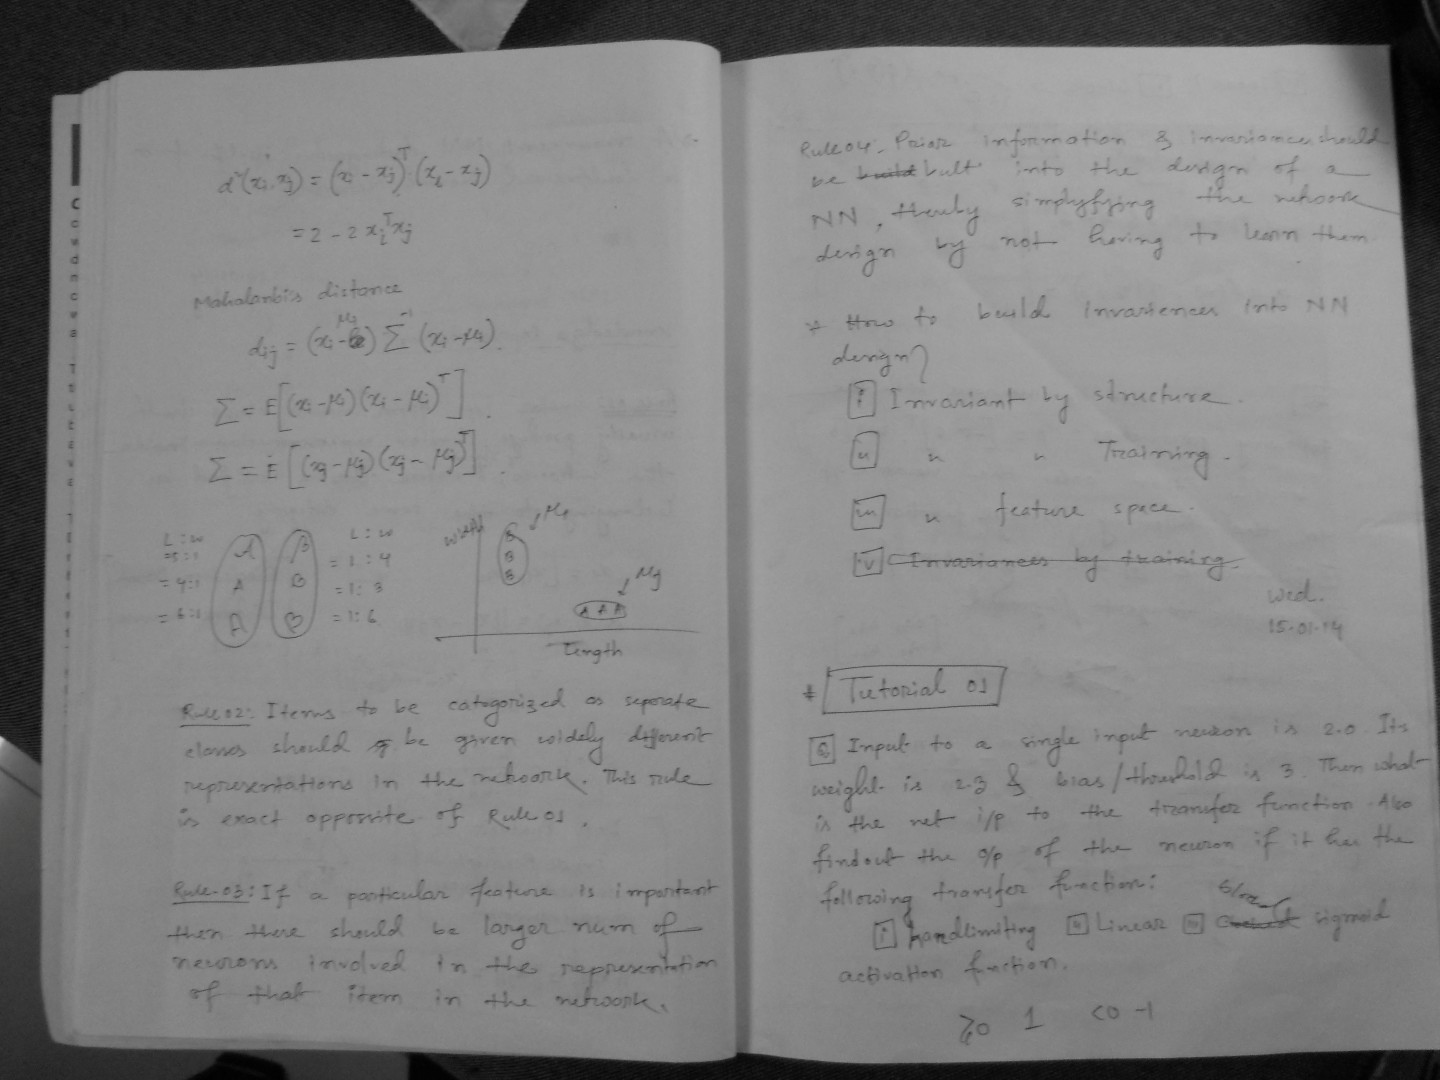 d²(xi, xj) = (xi - xj)ᵀ (xi - xj)
= 2 - 2 xiᵀxj
Mahalanbi's distance
μi
dij = (xi - ) Σ⁻¹ (xi - μi)
Σ = E[(xi - μi)(xi - μi)ᵀ].
Σ = E[(xj - μj)(xj - μj)ᵀ].
L : W
= 5 : 1
= 4 : 1
= 6 : 1
A
A
A
B
B
B
L : W
= 1 : 4
= 1 : 3
= 1 : 6
width
B
B
B
μi
A A A
μj
Length
Rule 02: Items to be catogorized as seperate
classes should be given widely different
representations in the network. This rule
is exact opposite of Rule 01.
Rule-03: If a particular feature is important
then there should be larger num of
neurons involved in the representation
of that item in the network.
Rule 04:- Prior information & invariances should
be build bult into the design of a
NN, thereby simplyfying the network
design by not having to learn them
* How to build Invariences into NN
design?
i Invariant by structure.
ii " " Training.
iii " feature space.
iv Invariances by training.
Wed.
15-01-14
* Tutorial 01
Q Input to a single input neuron is 2.0. Its
weight is 2.3 & bias/threshold is 3. Then what
is the net i/p to the transfer function. Also
findout the o/p of the neuron if it has the
following transfer function:
i hardlimiting ii Linear iii sigmoid
activation function.
≥0 1 <0 -1